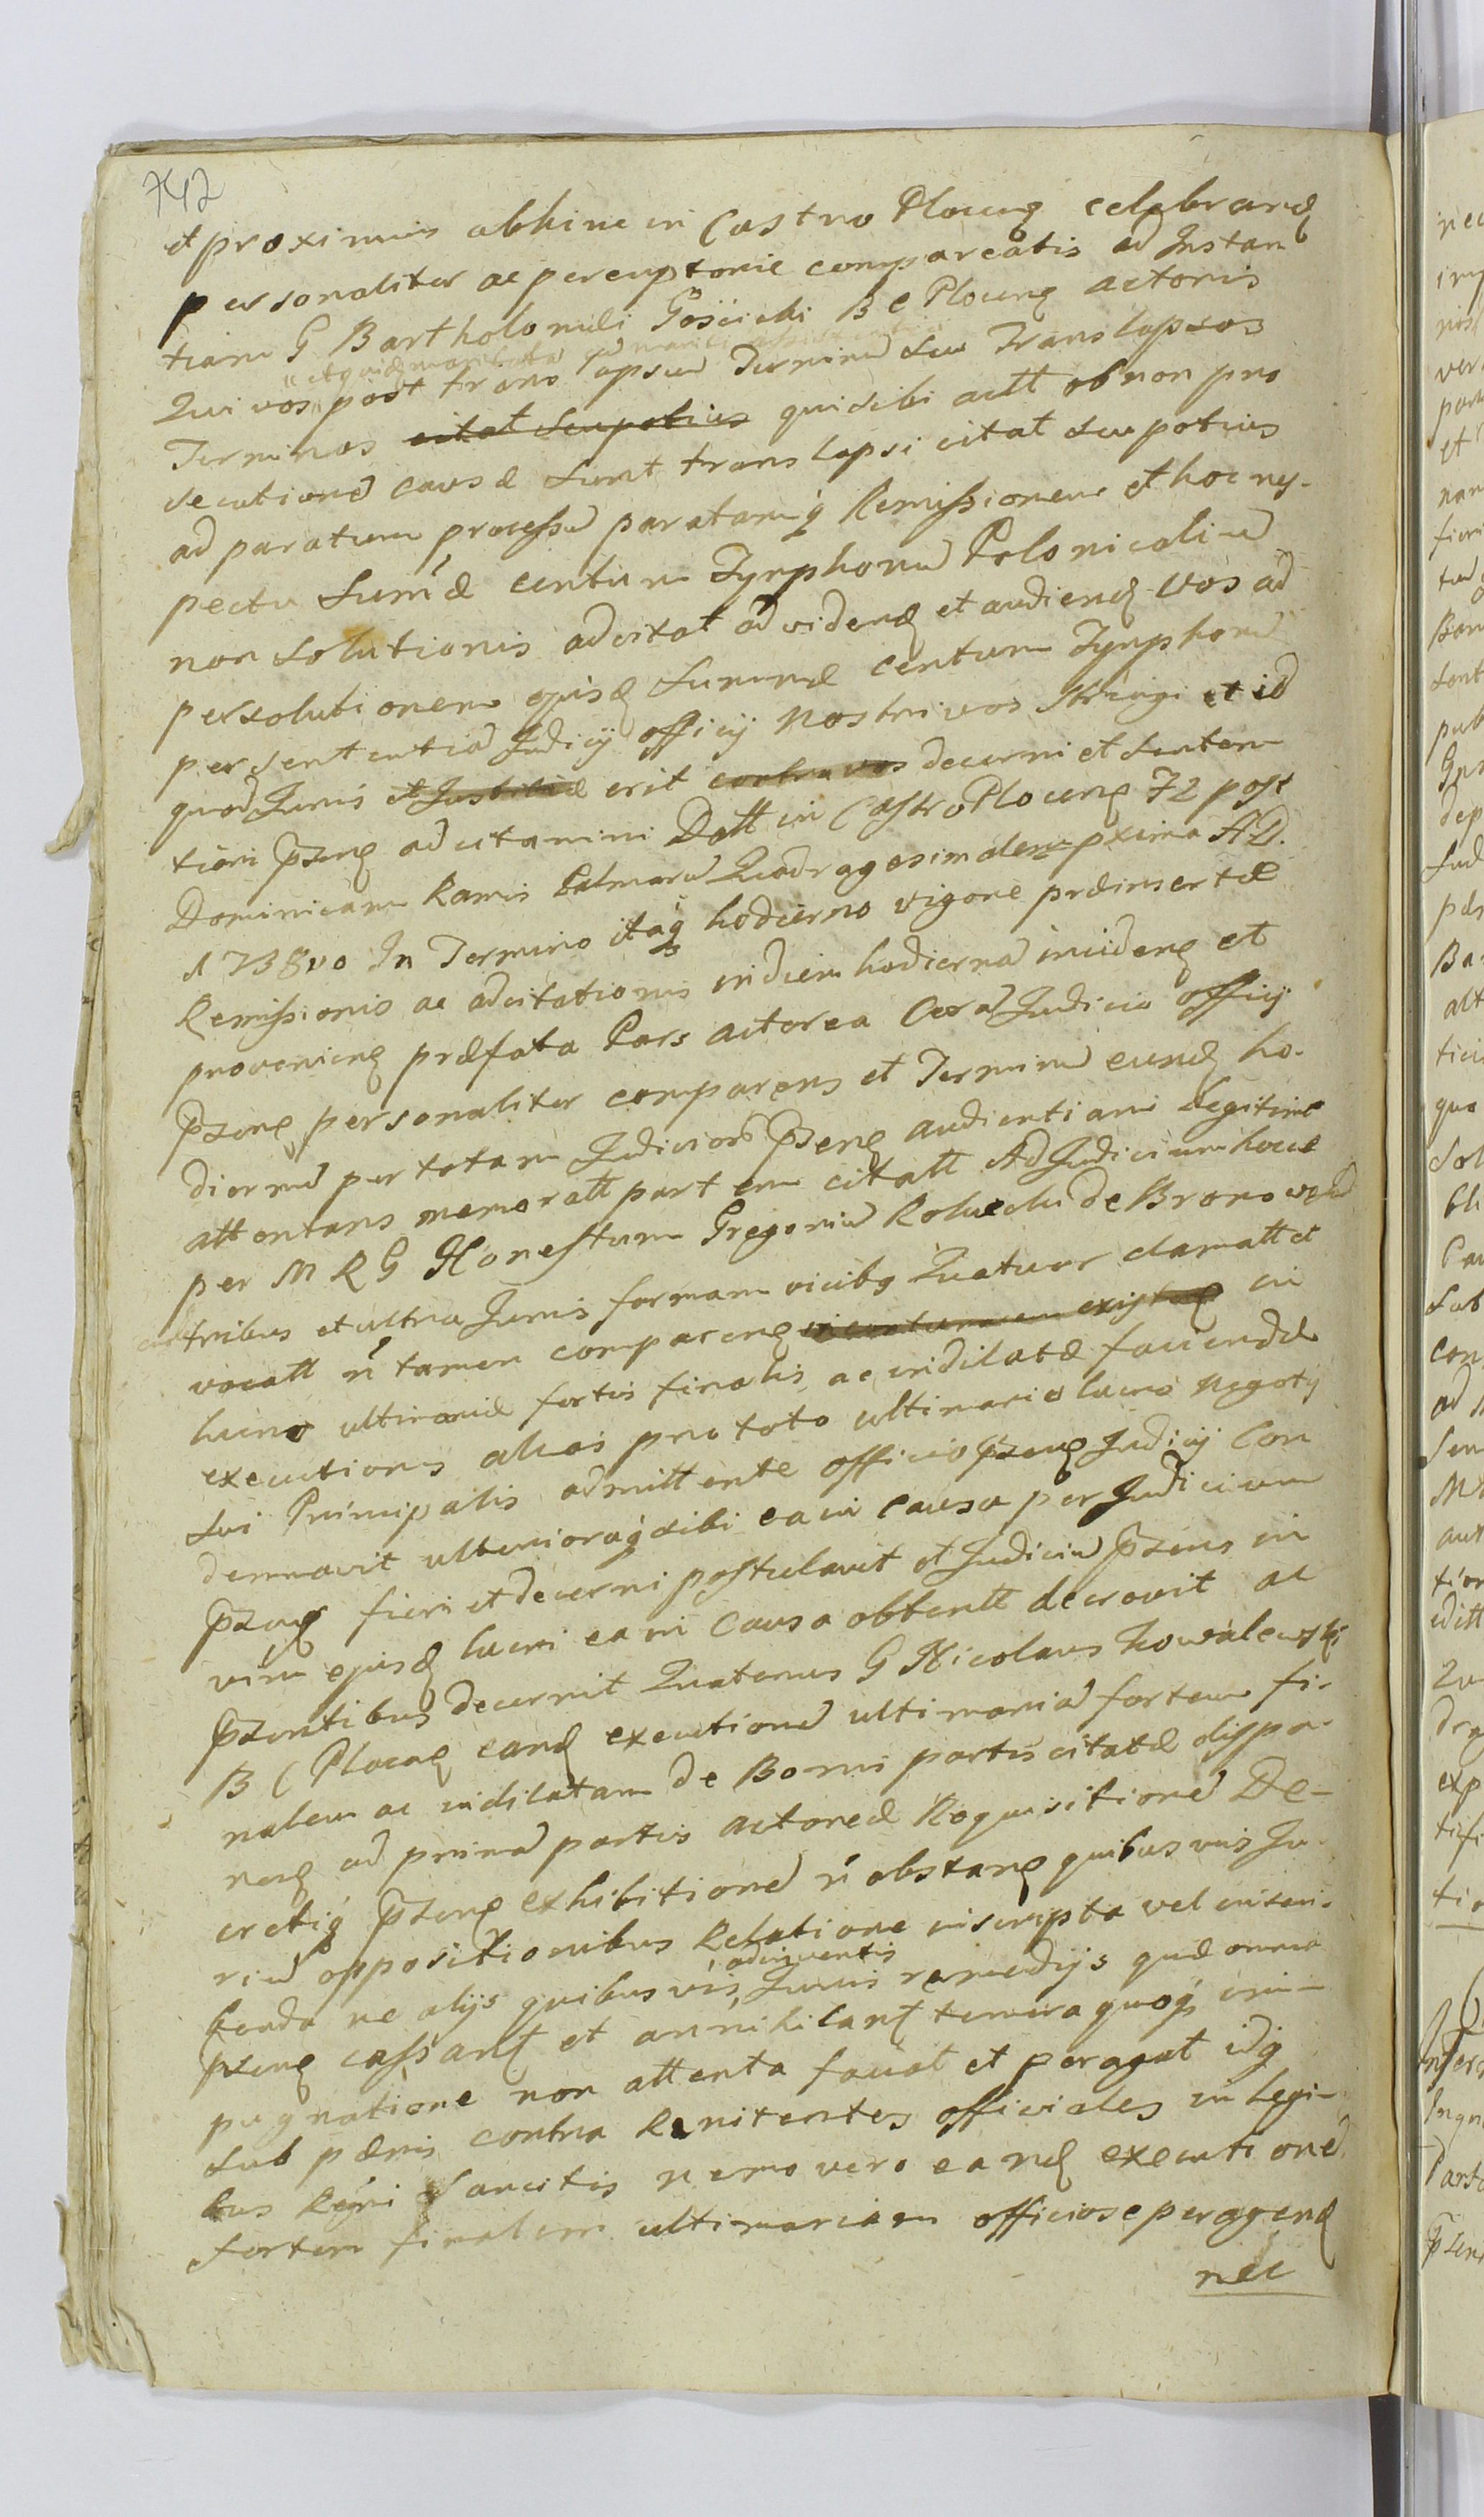 742
et proximis abhinc in Castro Plocen celebrand
personaliter ac peremptorie compareatis ad Instan
tiam G Bartholomæi Gościcki B C Plocen actoris
et quidem maritata cum mariti
Qui vos post trans lapsum Terminum seu Translapsos
Terminos citat seu potius qui sibi actt ob non pro
secutionem causæ sunt translapsi citat seu potius
ad paratum processum paratamq Remissionem et hoc res-
pectu Summæ centum Tynphonum Polonicalium
non solutionis adcitat ad vidend et audiend vos ad
persolutionem ejusd summæ centum Tynphonum
per sententiam Judicij officij nostri vos stringi et id
quod Juris et Justitiæ erit contra vos decerni et senten
tiari pzenq adcitamini Datt in Castro Plocenq F2 post
Dominicam Ramis Palmarum Quadragesimalem pximâ A D.
1738vo In Termino itaq hodierno vigore præinsertæ
Remissionis ac adcitationis in diem hodiernam incidenq et
provenienq præfata Pars actorea Coram Judicio officij
pzenq personaliter comparens et Terminum eund ho-
diernum per totam Judiciorum pzenq audientiam legitime
attentans memoratt partem citatt Ad Judicium hocce
per M R G Honestum Gregorium de
tribus et ultra Juris formam vicibq Quatuor clamatt et
vocatt n tamen comparenq in contumaciam in
lucro ultimariæ fortis finalis ac indilatæ faciendæ
executionis alias pro toto ultimario lucro negotij
sui Principalis admittente officio pzenq Judicij Con
demnavit ulterioraq sibi ea in causa per Judicium
pzenq fieri et decerni postulavit et Judicium pzens in
vim ejusd lucri ea in Causa obtentt decrevit ac
pzentibus decernit Quatenus G Nicolaus Kowalewski
B C Plocenq eand executionem ultimariam fortem fi-
nalem ac indilatam de Bonis partis citatæ dispo-
nenq ad primam partis actoreæ Requisitionem De-
cretiq pzenq exhibitionem n obstanq quibusvis Ju-
rium oppositionibus Relatione inscripta vel inscri-
benda nec alijs quibusvis adinventis Juris remedijs quæ omnia
pzenq cassant et annihilant temeraq quoq im-
pugnatione non attenta faciat et peragat idq
sub pænis contra Renitentes officiales in Legi-
bus Regni Sancitis nemo vero eand executionem
fortem finalem ultimariam officiose peragend
nec